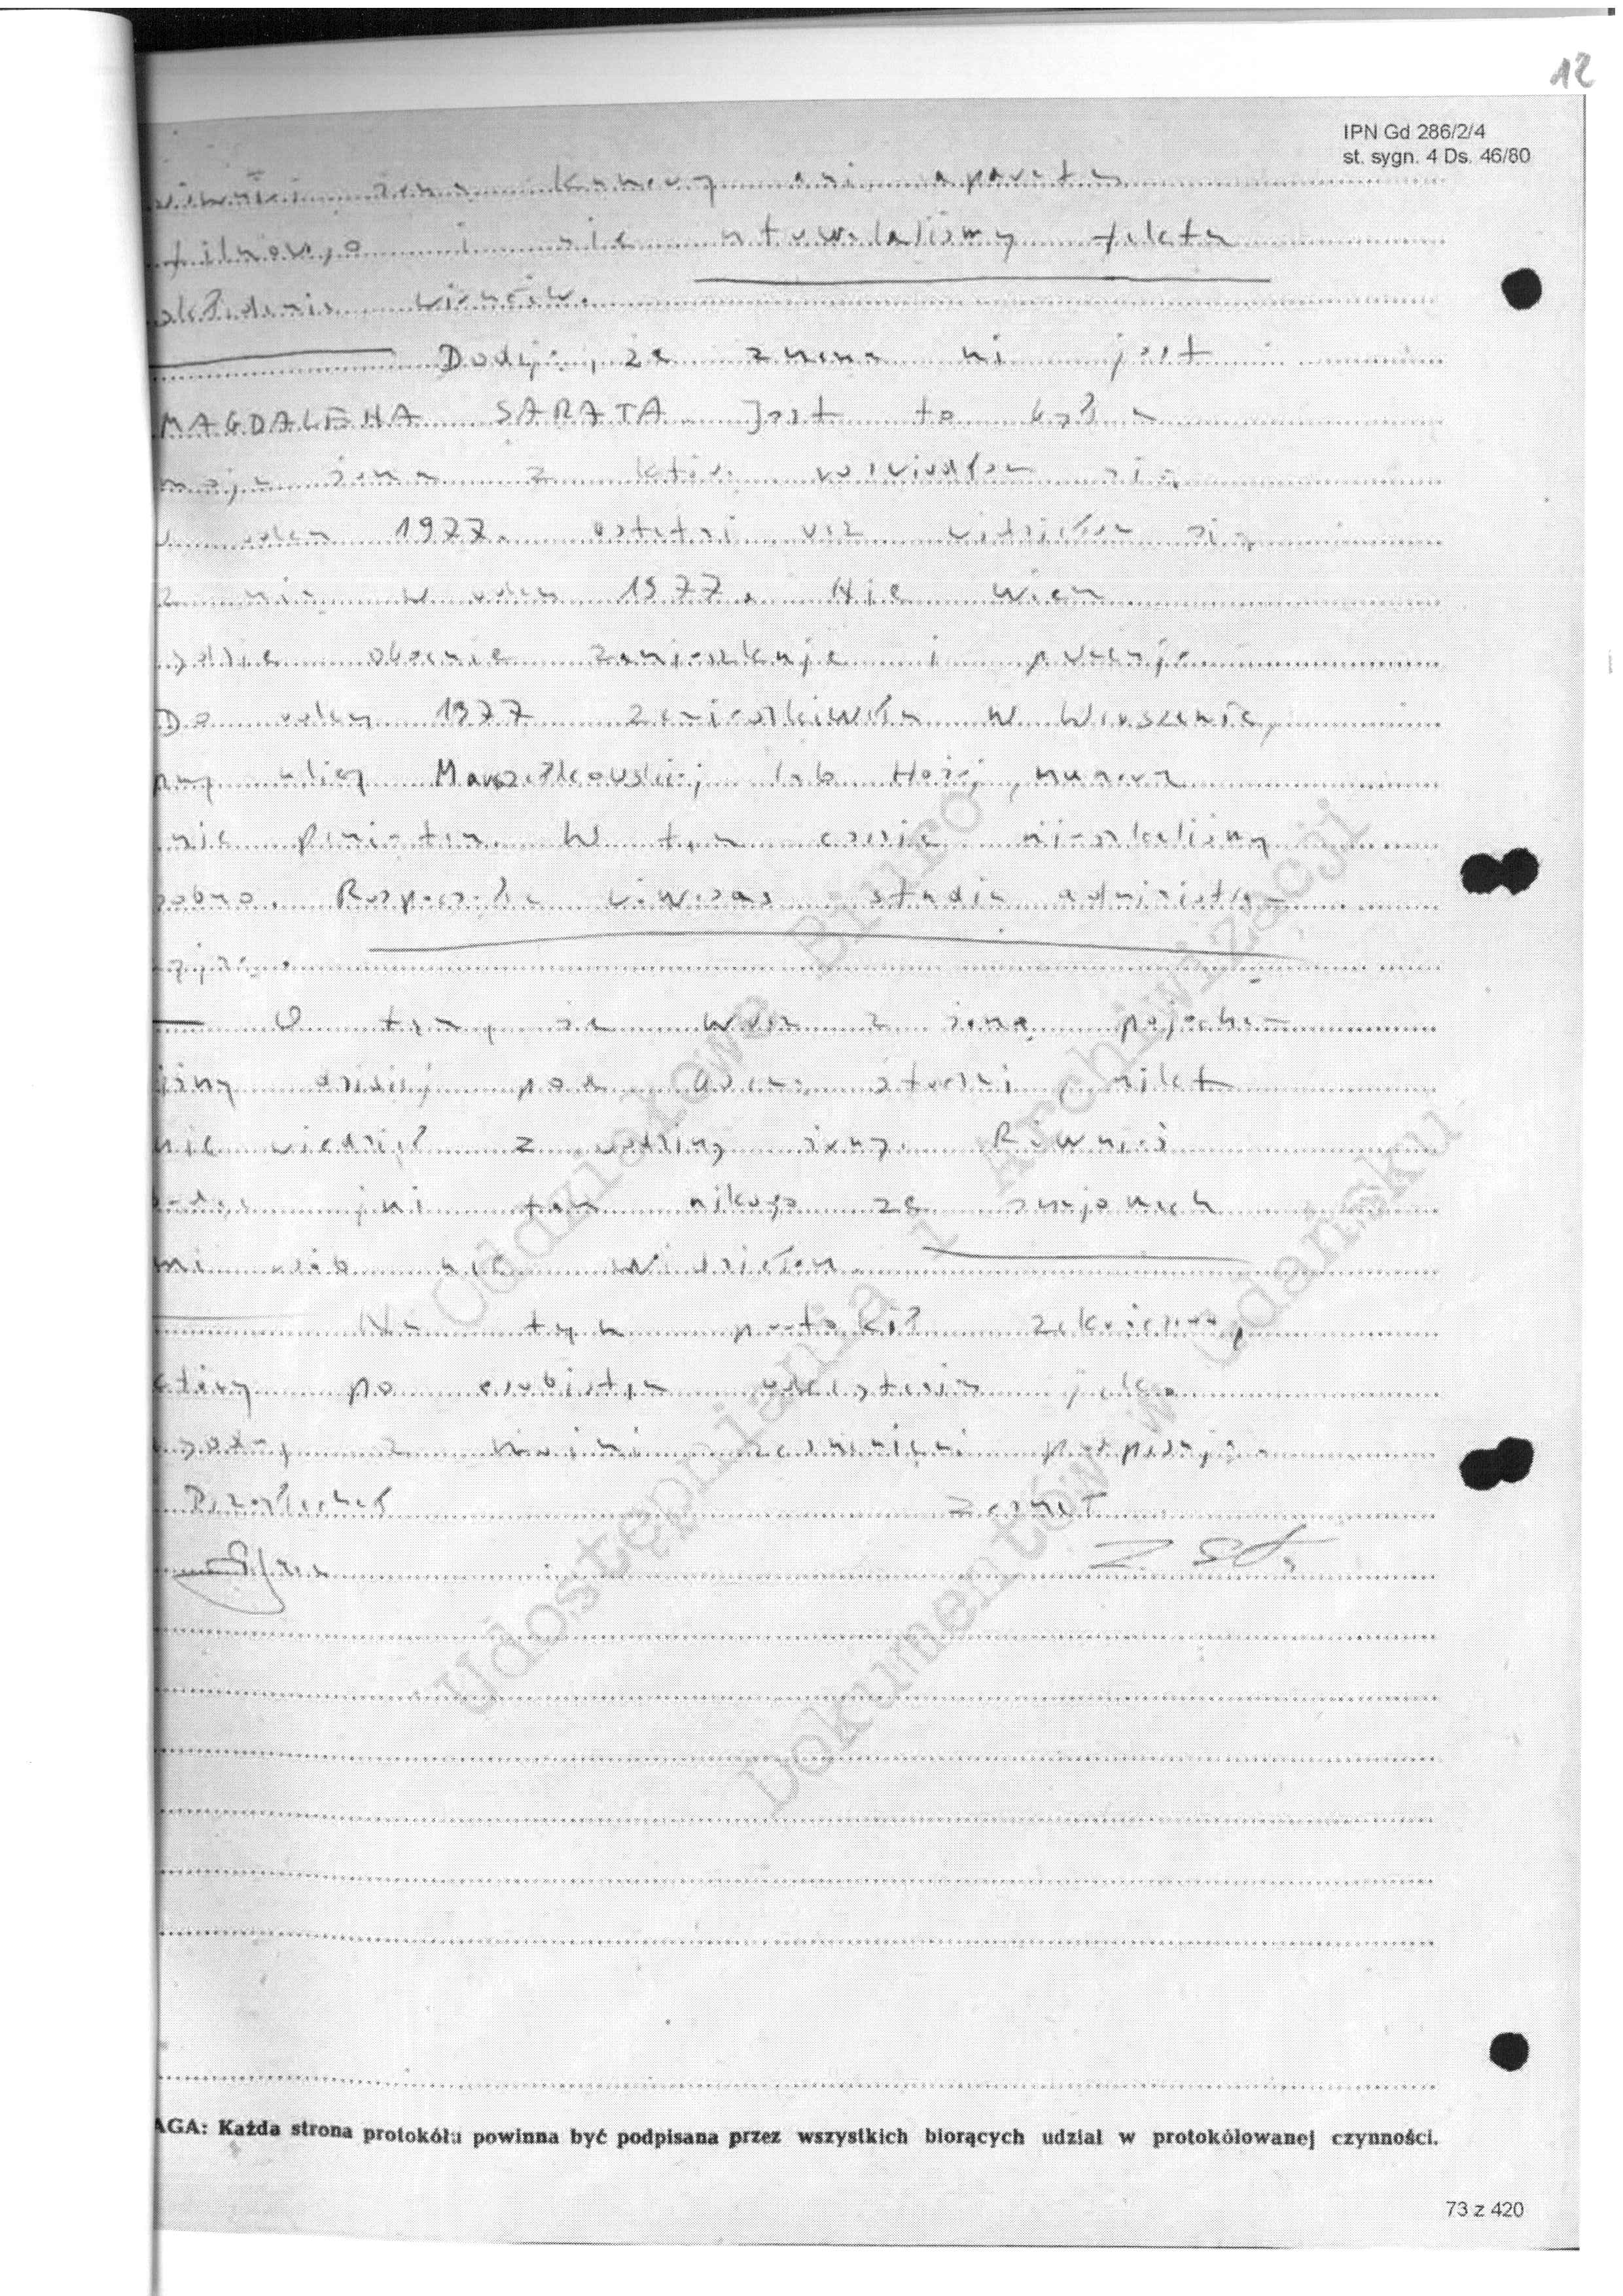 12
IPN Gd 286/2/4
st. sygn. 4 Ds. 46/80
żona kamery ani aparatu
i nie utrwalaliśmy faktu
wieńców.
Dodaję, że znana mi jest
MAGDALENA SARATA Jest to była
moja żona z którą rozwiodłem się
w roku 1977. ostatni raz widziałem się
z nią w roku 1977. Nie wiem
gdzie obecnie zamieszkuje i pracuje
Do roku 1977 w Warszawie,
przy ulicy Marszałkowskiej lub Hożej, numeru
nie pamiętam. W tym czasie mieszkaliśmy
Rozpoczęła wówczas studia administra-
O tym, że wraz z żoną pojecha-
liśmy dzisiaj pod stoczni nikt
nie wiedział z rodziny żony. Również
tam nikogo ze znajomych
mi osób nie widziałem
Na tym protokół zakończono,
po osobistym jako
z moimi zeznaniami podpisuję.
Przesłuchał zeznał
AGA: Każda strona protokółu powinna być podpisana przez wszystkich biorących udział w protokółowanej czynności.
73 z 420
Oddziałowe Biuro
Udostępniania i Archiwizacji
Dokumentów w Gdańsku